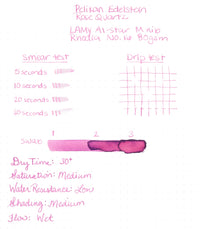 Pelikan Edelstein
Rose Quartz
LAMY Al-Star M nib
Rhodia No. 16 80gsm
Smear Test
Drip Test
5 seconds
10 seconds
20 seconds
60 seconds
1 2 3
Swab
Dry Time: 30+
Saturation: Medium
Water Resistance: Low
Shading: Medium
Flow: Wet